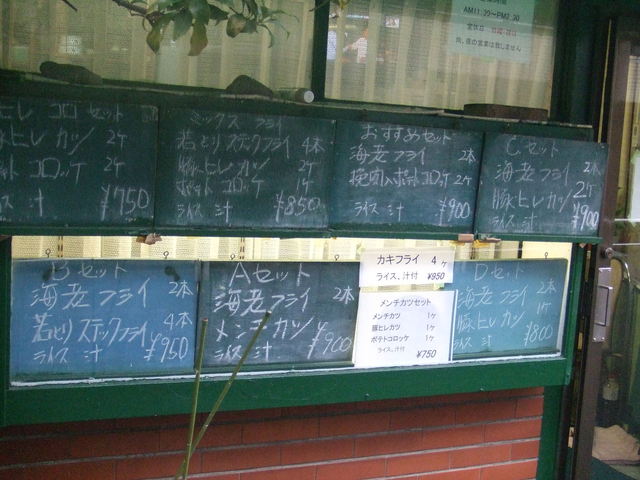 AM11:30~PM2:30
ヒレ コロ セット
豚ヒレ カツ 2ケ
ポテト コロッケ 2ケ
ライス 汁 ¥750
ミックス フライ
若とり スティックフライ 4本
豚ヒレ カツ 2ケ
ポテト コロッケ 1ケ
ライス 汁 ¥850
おすすめセット
海老フライ 2本
挽肉入ポテトコロッケ 2ケ
ライス 汁 ¥900
Cセット
海老フライ 2本
豚ヒレカツ 2ケ
ライス 汁 ¥900
Bセット
海老フライ 2本
若とり スティックフライ 4本
ライス 汁 ¥950
Aセット
海老フライ 2本
メンチカツ
ライス 汁 ¥900
カキフライ 4ヶ
ライス、汁付 ¥850
メンチカツセット
メンチカツ 1ヶ
豚ヒレカツ 1ヶ
ポテトコロッケ 1ヶ
ライス、汁付
¥750
Dセット
海老フライ 2本
豚ヒレカツ 1ケ
ライス 汁 ¥800